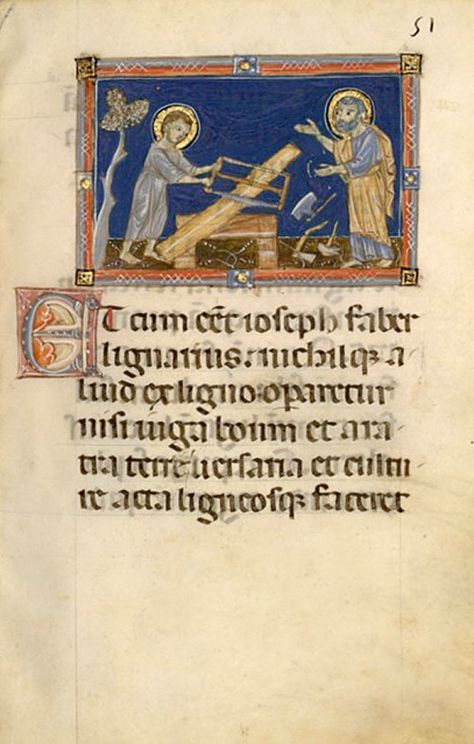 51
ET cum eēt ioseph faber
lignarius. nichilq; a
liud ex ligno oparetur
nisi iuga boum et ara
tra terre uersaria et cultu
re acta ligneosq; faceret